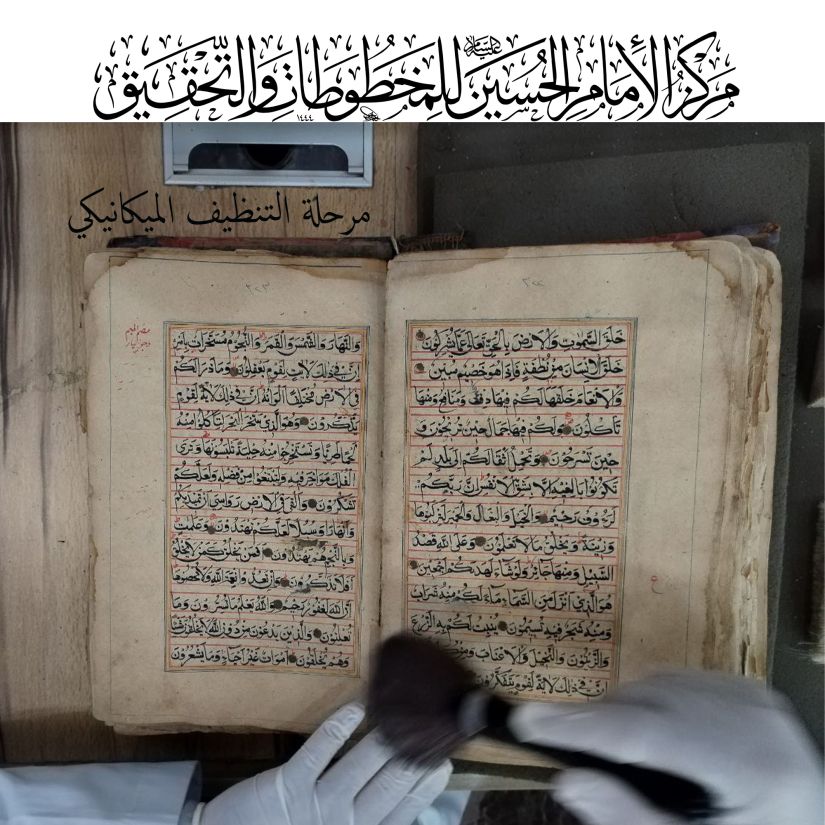 مركز الإمام الحسين عليه السلام للمخطوطات والتحقيق
١٤٤٤
مرحلة التنظيف الميكانيكي
٣٢٢
خلق السموت والارض بالحق تعالى عما يشركون
خلق الانسان من نطفة فاذا هو خصيم مبين
والانعام خلقها لكم فيها دفء ومنافع ومنها
تاكلون ولكم فيها جمال حين تريحون و
حين تسرحون وتحمل اثقالكم الى بلد لم
تكونوا بالغيه الا بشق الانفس ان ربكم
لرءوف رحيم والخيل والبغال والحمير لتركبوها
وزينة ويخلق ما لا تعلمون وعلى الله قصد
السبيل ومنها جائر ولو شاء لهدكم اجمعين
هو الذي انزل من السماء ماء لكم منه شراب
ومنه شجر فيه تسيمون ينبت لكم به الزرع
والزيتون والنخيل والاعناب ومن
ان في ذلك لاية لقوم يتفكرون
٣٢٣
والنهار والشمس والقمر والنجوم مسخرات بامره
ان في ذلك لايات لقوم يعقلون وما ذرا لكم
في الارض مختلفا الوانه ان في ذلك لاية لقوم
يذكرون وهو الذي سخر البحر لتاكلوا منه
لحما طريا وتستخرجوا منه حلية تلبسونها وترى
الفلك مواخر فيه ولتبتغوا من فضله ولعلكم
تشكرون والقى في الارض رواسي ان تميد بكم
وانهارا وسبلا لعلكم تهتدون وعلمت
وبالنجم هم يهتدون افمن يخلق كمن لا يخلق
افلا تذكرون وان تعدوا نعمة الله لا تحصوها
ان الله لغفور رحيم والله يعلم ما تسرون وما
تعلنون والذين يدعون من دون الله لا يخلقون شيئا
وهم يخلقون اموات غير احياء وما يشعرون